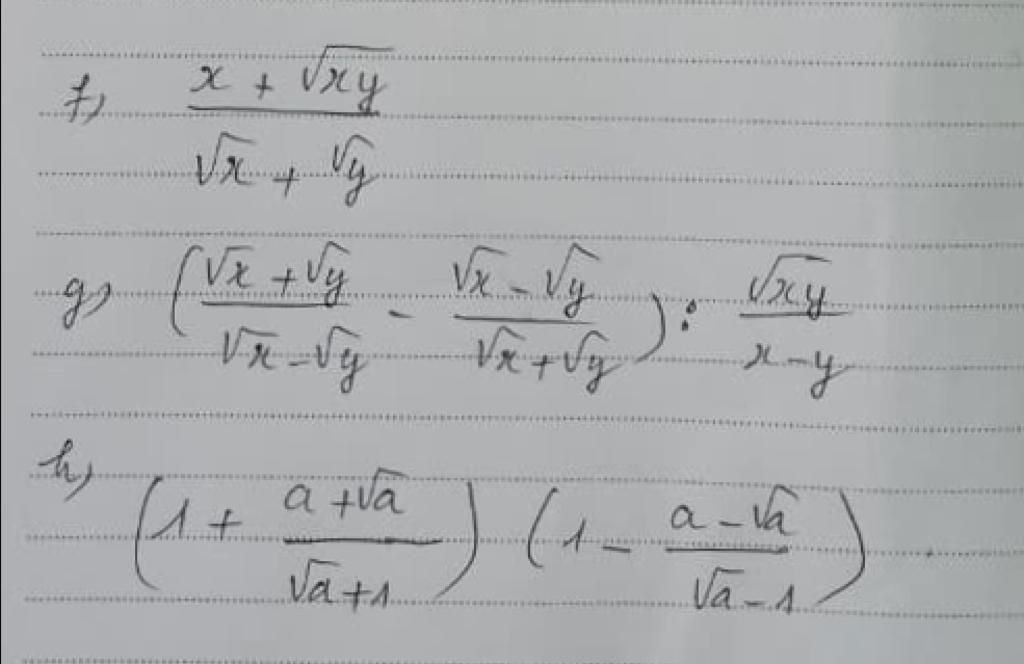 f, (x + √xy)/(√x + √y)
g, ((√x + √y)/(√x - √y) - (√x - √y)/(√x + √y)) : √xy/(x - y)
h, (1 + (a + √a)/(√a + 1)) (1 - (a - √a)/(√a - 1))